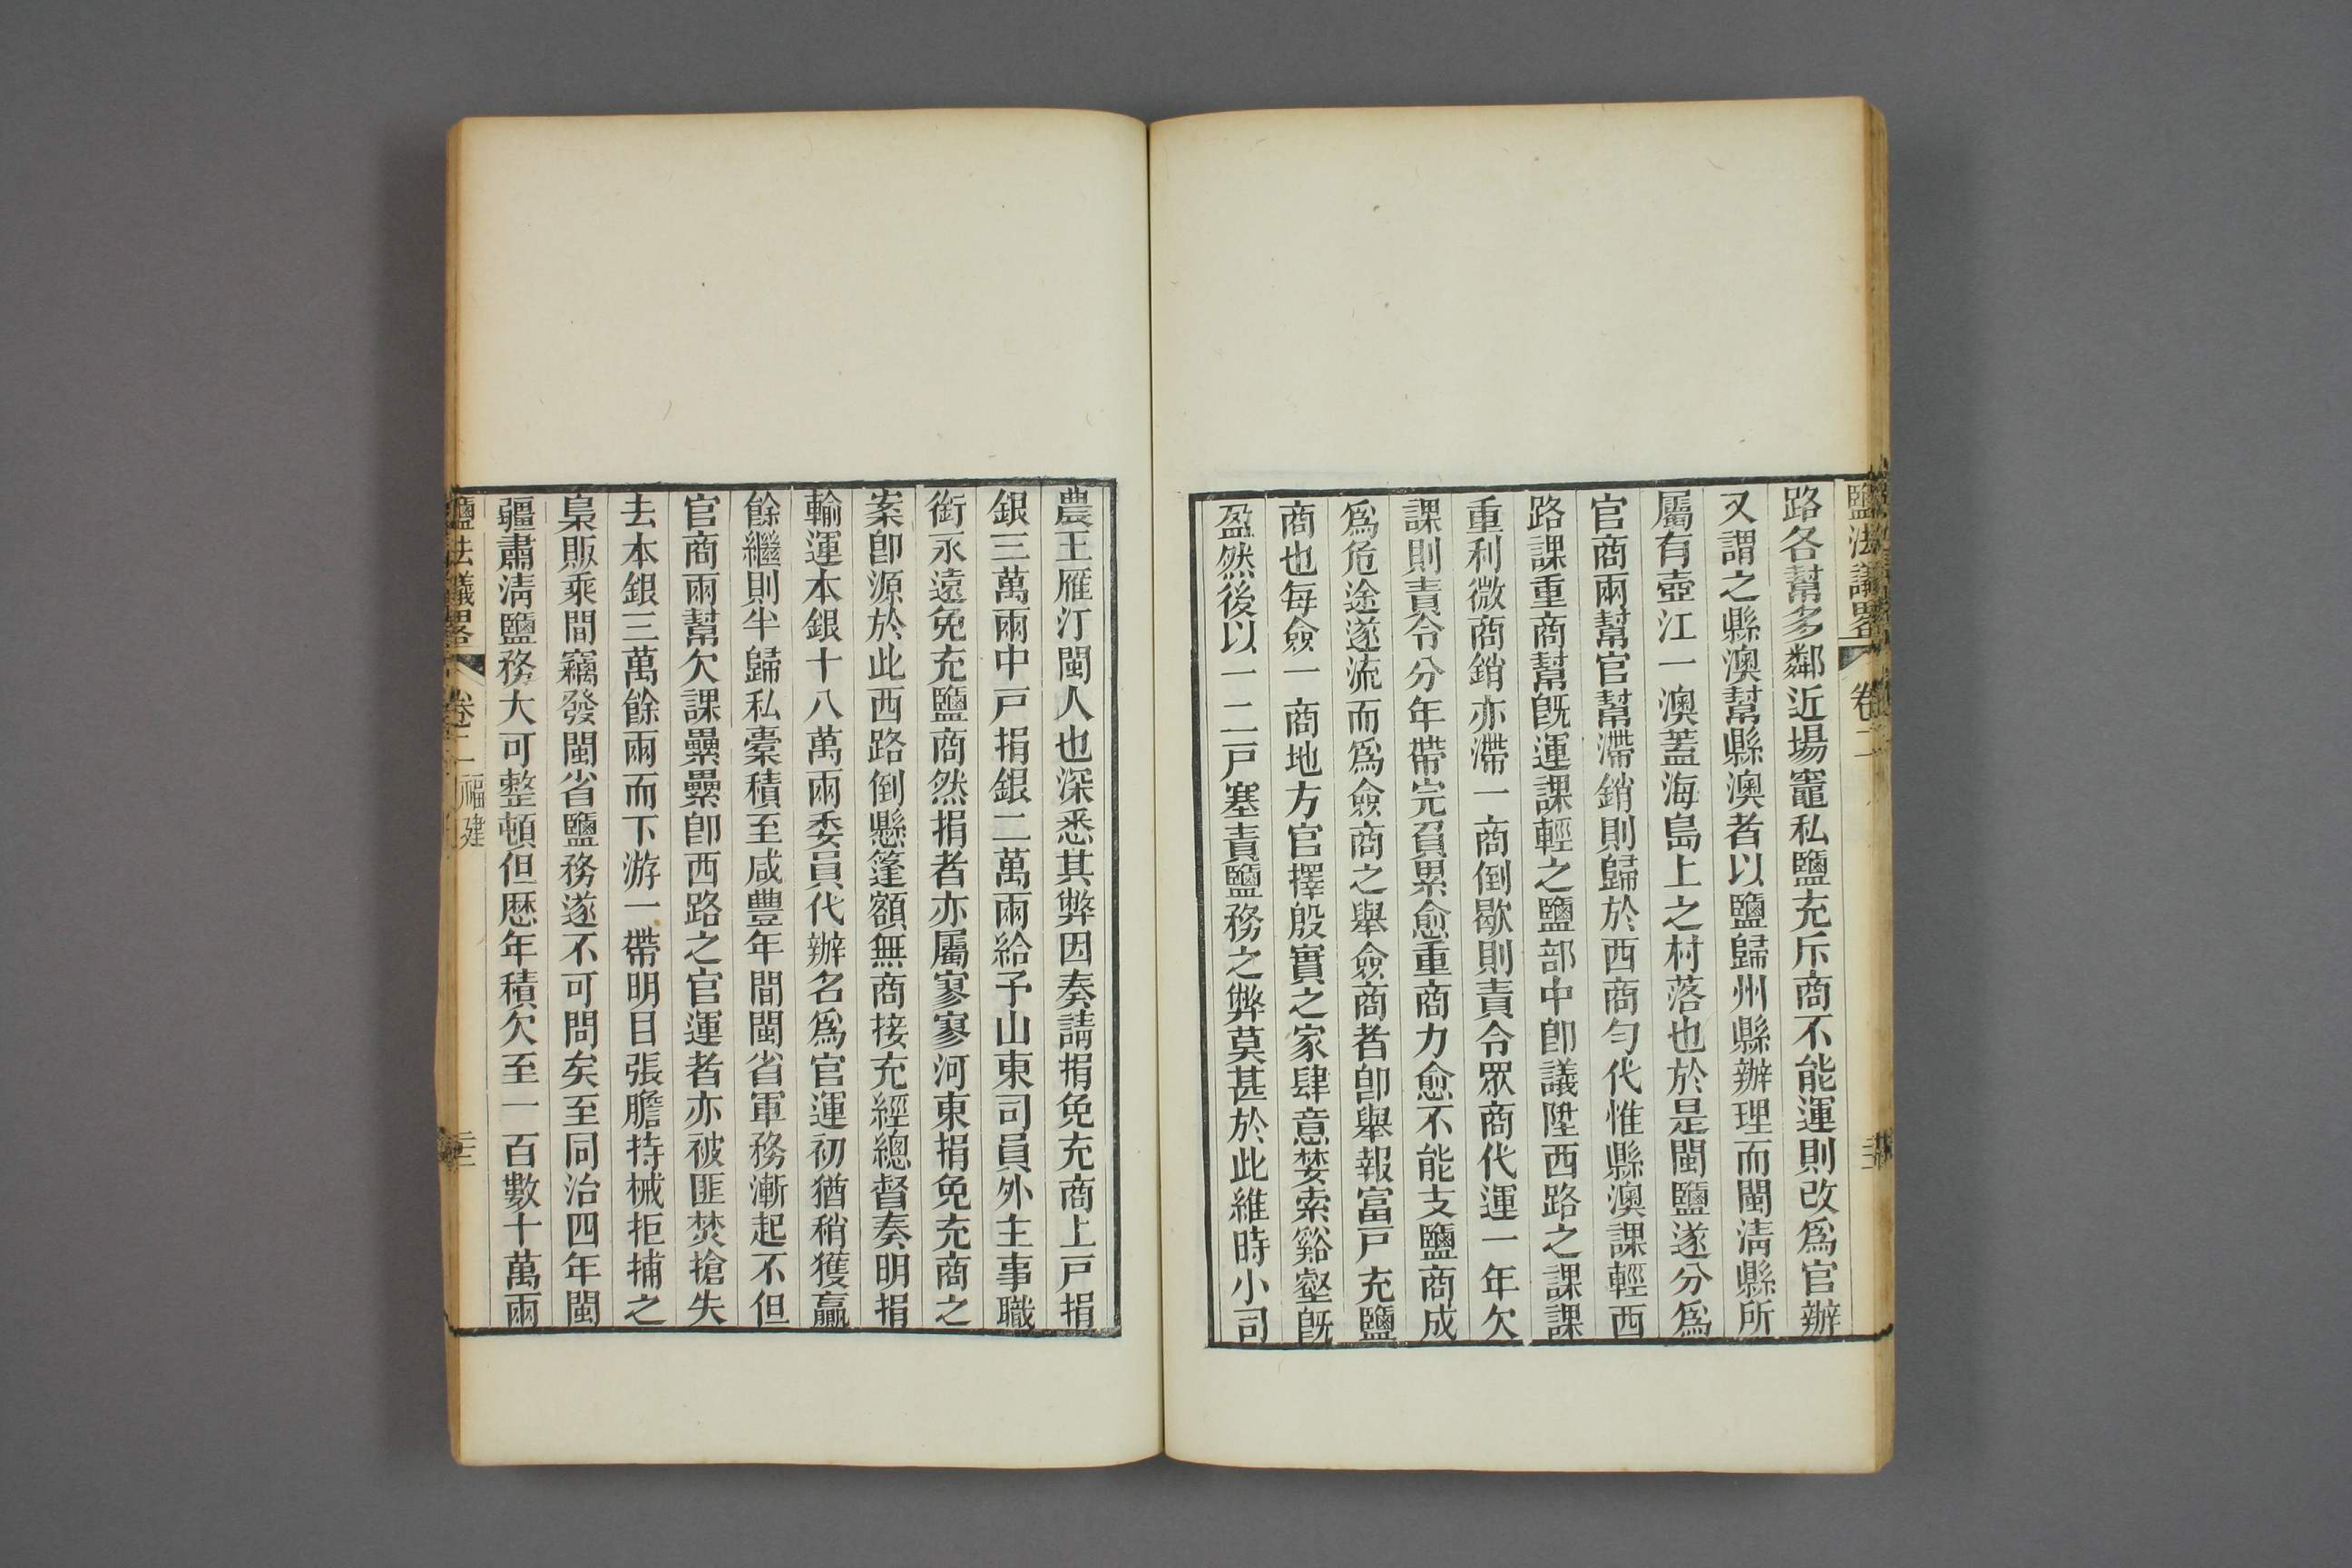 鹽法議畧 卷二
路各幫多鄰近場竈私鹽充斥商不能運則改爲官辦
又謂之縣澳幫縣澳者以鹽歸州縣辦理而閩淸縣所
屬有壺江一澳蓋海島上之村落也於是閩鹽遂分爲
官商兩幫官幫滯銷則歸於西商勻代惟縣澳課輕西
路課重商幫旣運課輕之鹽部中卽議陞西路之課課
重利微商銷亦滯一商倒歇則責令眾商代運一年欠
課則責令分年帶完負累愈重商力愈不能支鹽商成
爲危途遂流而爲僉商之舉僉商者卽舉報富戸充鹽
商也每僉一商地方官擇殷實之家肆意婪索谿壑旣
盈然後以一二戸塞責鹽務之弊莫甚於此維時小司
農王雁汀閩人也深悉其弊因奏請捐免充商上戸捐
銀三萬兩中戸捐銀二萬兩給予山東司員外主事職
銜永遠免充鹽商然捐者亦屬寥寥河東捐免充商之
案卽源於此西路倒懸篷額無商接充經總督奏明捐
輸運本銀十八萬兩委員代辦名爲官運初猶稍獲贏
餘繼則半歸私橐積至咸豐年間閩省軍務漸起不但
官商兩幫欠課纍纍卽西路之官運者亦被匪焚搶失
去本銀三萬餘兩而下游一帶明目張膽持械拒捕之
梟販乘間竊發閩省鹽務遂不可問矣至同治四年閩
疆肅淸鹽務大可整頓但歷年積欠至一百數十萬兩
鹽法議畧 卷二 福建